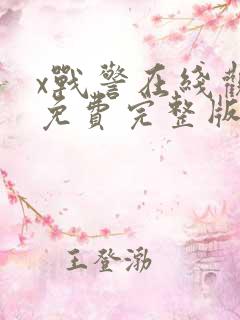 x戰警在綫觀
免費完整版
王登渤